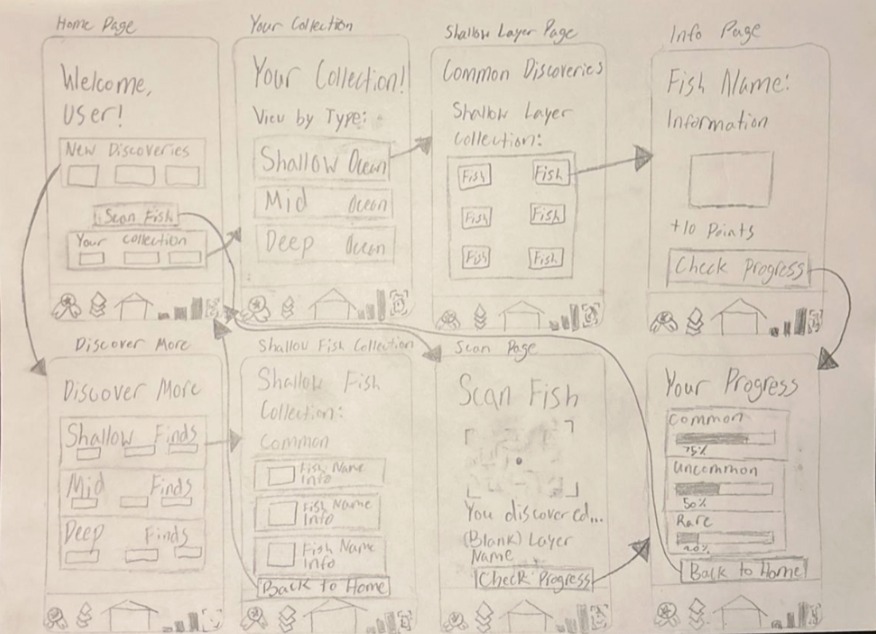 Home Page
Welcome,
User!
New Discoveries
Scan Fish
Your Collection
Your Collection
Your Collection!
View by Type:
Shallow Ocean
Mid Ocean
Deep Ocean
Shallow Layer Page
Common Discoveries
Shallow Layer
Collection:
Fish Fish
Fish Fish
Fish Fish
Info Page
Fish Name:
Information
+10 Points
Check Progress
Discover More
Discover More
Shallow Finds
Mid Finds
Deep Finds
Shallow Fish Collection
Shallow Fish
Collection:
Common
Fish Name
Info
Fish Name
Info
Fish Name
Info
Back to Home
Scan Page
Scan Fish
You discovered...
(Blank) Layer
Name
Check Progress
Your Progress
Common
75%
Uncommon
50%
Rare
20%
Back to Home